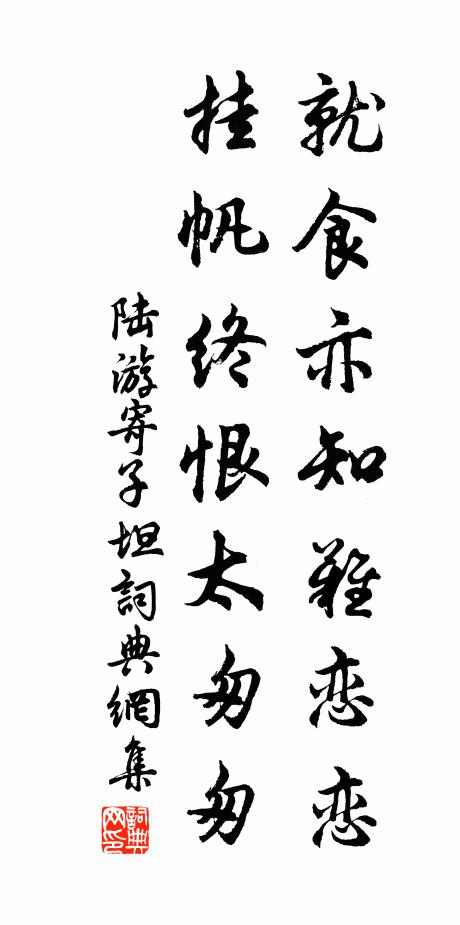 就食亦知難恋恋
挂帆终恨太匆匆
陆游寄子坦詞典網集
詞典网印